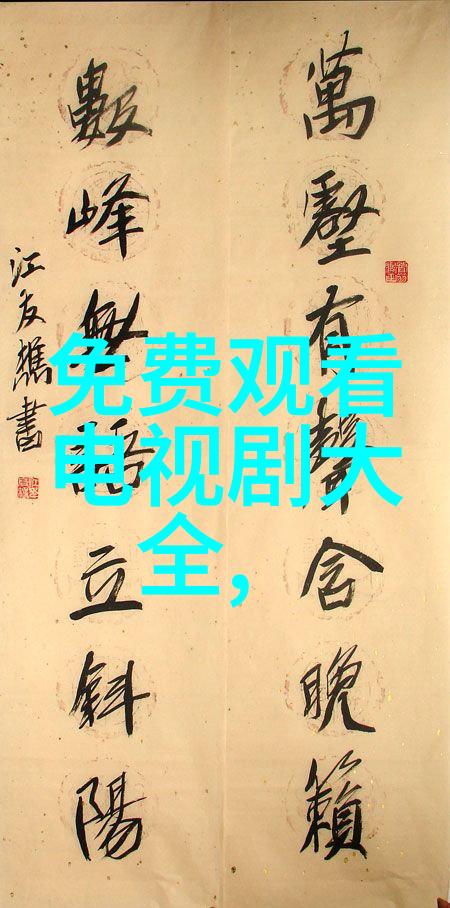 萬壑有聲含晚籟
數峰無語立斜陽
江友樵書
免费观看
电视剧大
全,